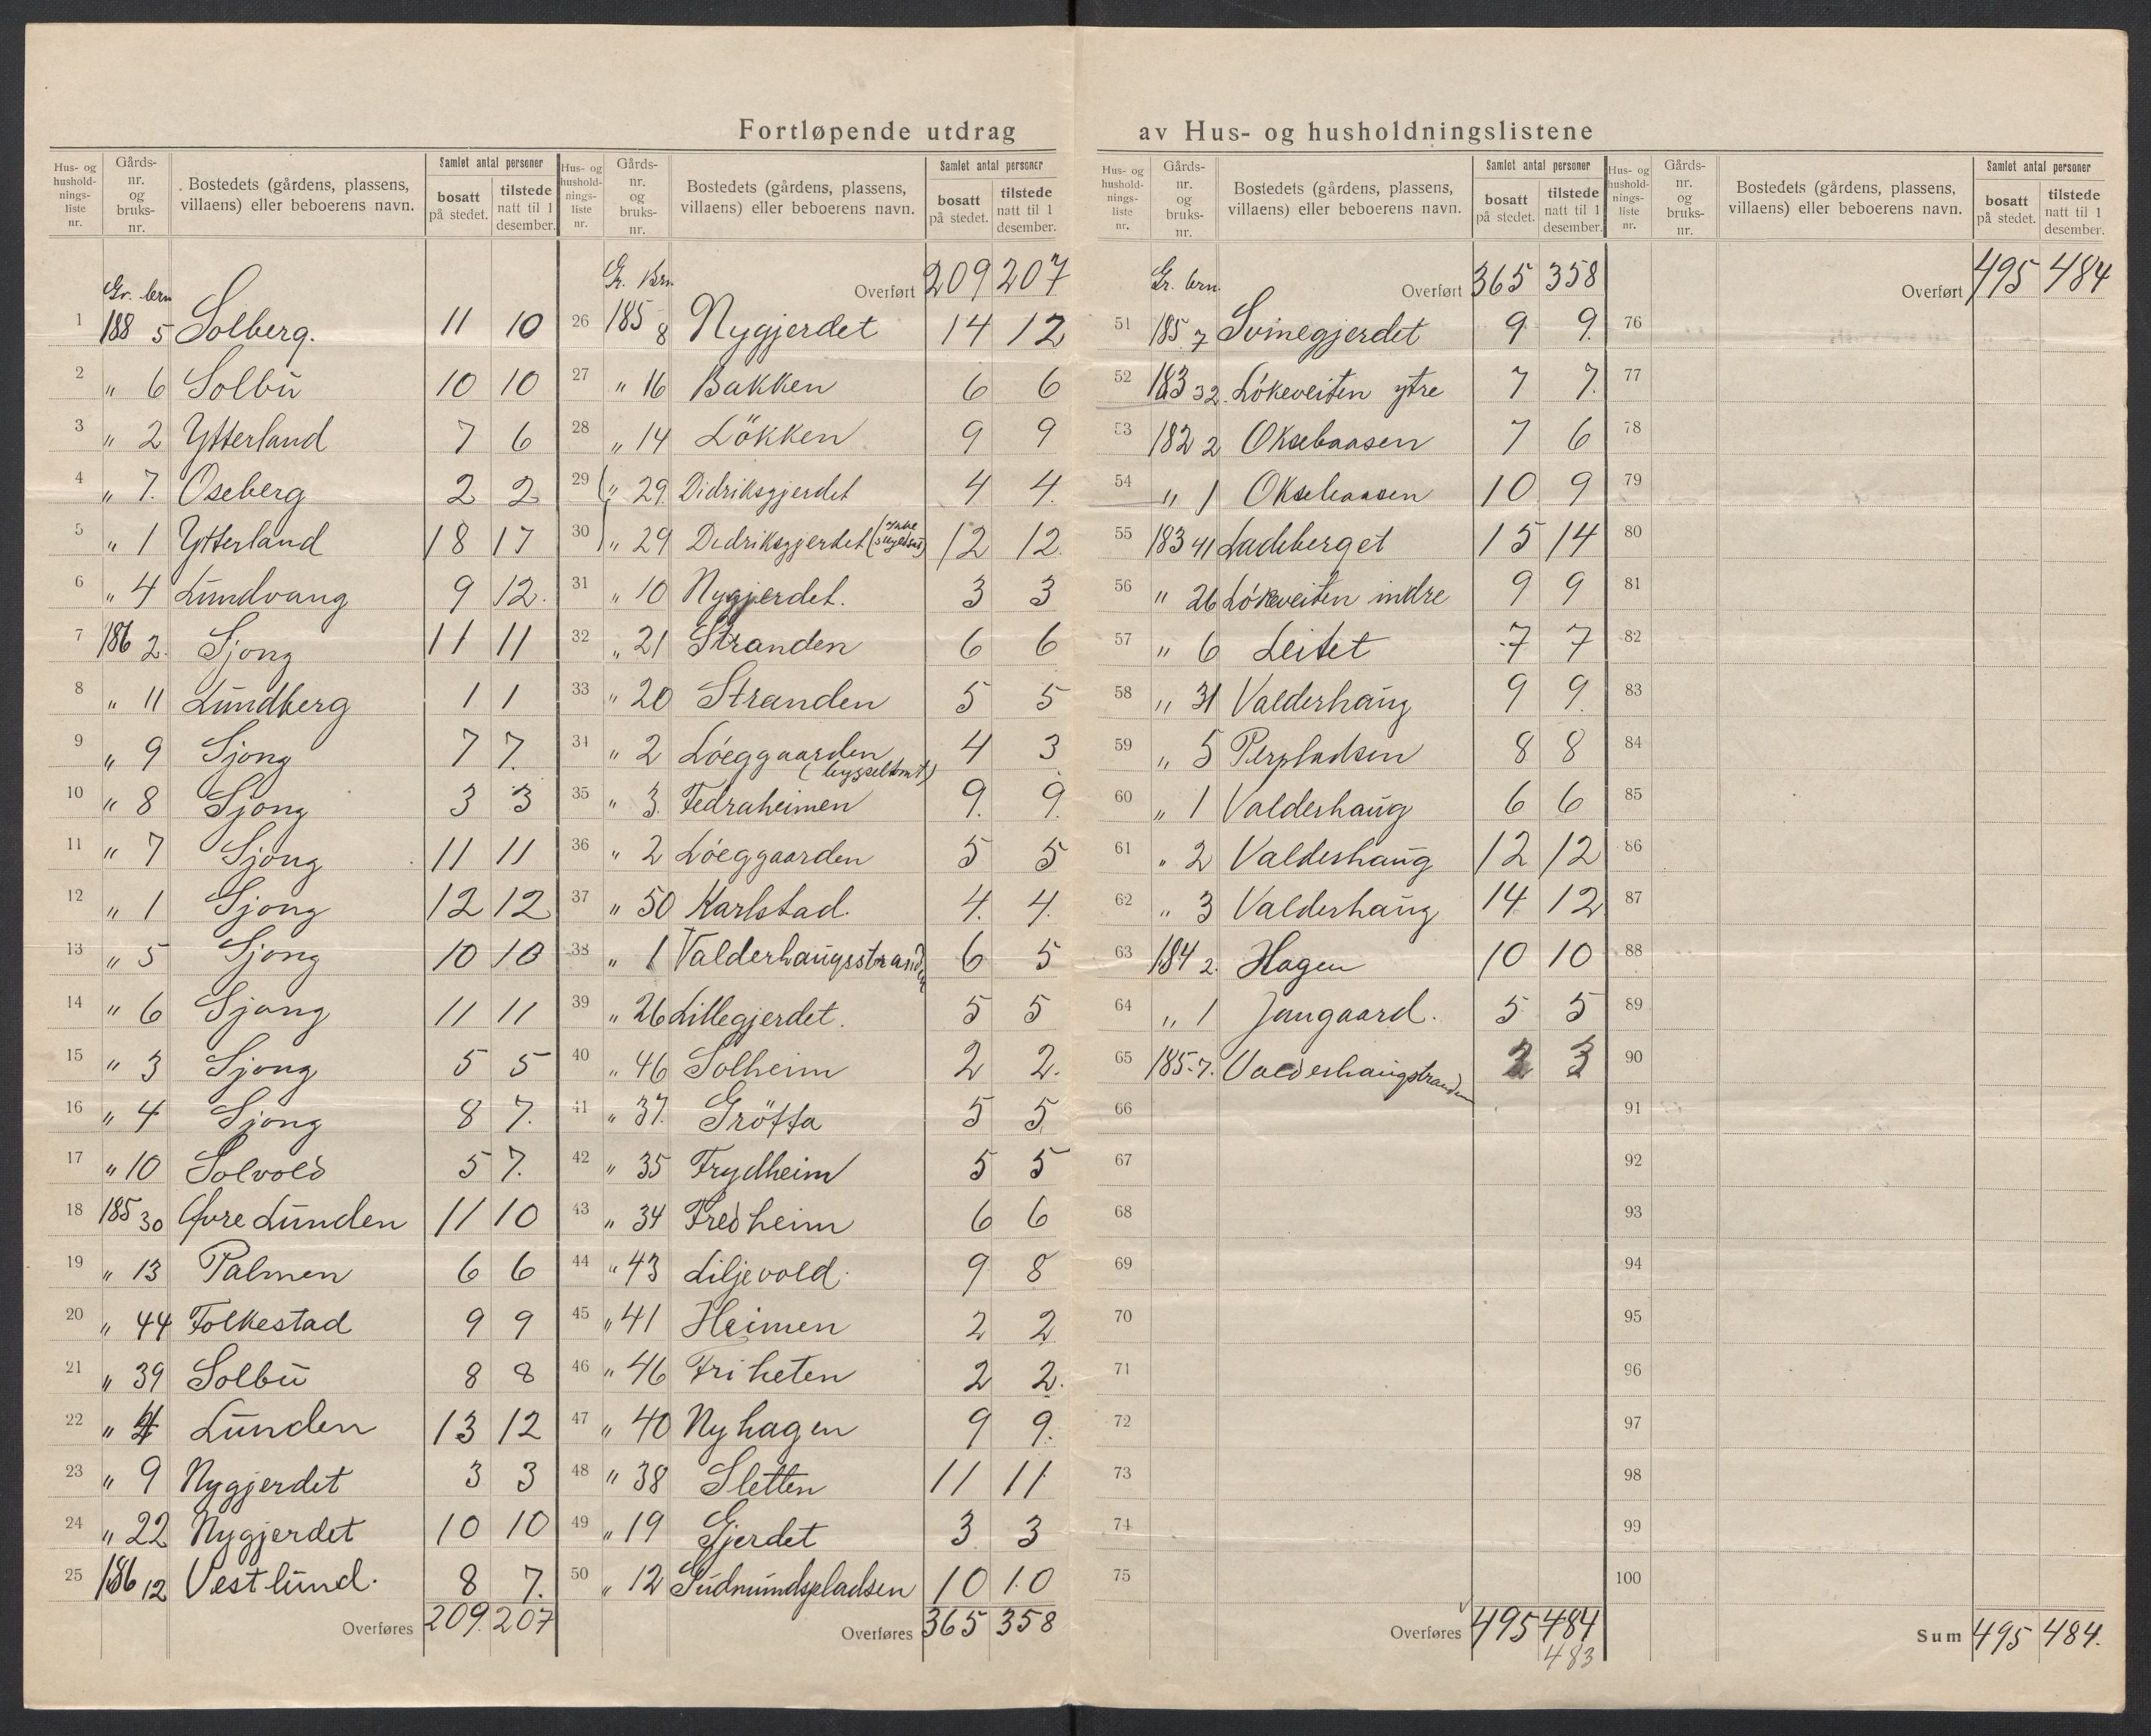 Fortløpende utdrag av Hus- og husholdningslistene
Hus- og husholdnings-liste nr. Gårds-nr. og bruks-nr. Bostedets (gårdens, plassens, villaens) eller beboerens navn. Samlet antal personer bosatt på stedet. tilstede natt til 1 desember.
Gr. brn
1 188 5 Solberg. 11 10
2 " 6 Solbu 10 10
3 " 2 Ytterland 7 6
4 " 7. Oseberg 2 2
5 " 1 Ytterland 18 17
6 " 4 Lundvang 9 12.
7 186 2. Sjong 11 11
8 " 11 Lundberg 1 1
9 " 9 Sjong 7 7.
10 " 8 Sjong 3 3
11 " 7 Sjong 11 11
12 " 1 Sjong 12 12
13 " 5 Sjong 10 10
14 " 6 Sjong 11 11
15 " 3 Sjong 5 5
16 " 4 Sjong 8 7.
17 " 10 Solvold 5 7.
18 185 30 Øvre Lunden 11 10
19 " 13 Palmen 6 6
20 " 44 Folkestad 9 9
21 " 39 Solbu 8 8
22 " 4 Lunden 13 12
23 " 9 Nygjerdet 3 3
24 " 22 Nygjerdet 10 10
25 186 12 Vestlund. 8 7.
Overføres 209. 207
Hus- og husholdnings-liste nr. Gårds-nr. og bruks-nr. Bostedets (gårdens, plassens, villaens) eller beboerens navn. Samlet antal personer bosatt på stedet. tilstede natt til 1 desember.
Gr. Brn. Overført 209 207
26 185 8 Nygjerdet 14 12
27 " 16 Bakken 6 6
28 " 14 Løkken 9 9
29 " 29 Didriksgjerdet 4 4.
30 " 29 Didriksgjerdet 12 12.
31 " 10 Nygjerdet. 3 3
32 " 21 Stranden 6 6
33 " 20 Stranden 5 5
34 " 2 Lóeggaarden 4 3
(bygseltomt)
35 " 3. Fedraheimen 9. 9.
36 " 2 Lóeggaarden 5 5
37 " 50 Karlstad. 4. 4.
38 " 1 Valderhaugsstranden 6 5
39 " 26 Lillegjerdet. 5 5
40 " 46 Solheim 2 2.
41 " 37. Grøfta 5 5
42 " 35 Frydheim 5 5
43 " 34 Fredheim 6 6
44 " 43 Liljevold. 9 8
45 " 41 Heimen 2 2
46 " 46 Friheten 2 2.
47 " 40 Nyhagen 9 9.
48 " 38 Sletten 11 11
49 " 19 Gjerdet 3 3
50 " 12 Gudmundspladsen 10 10
Overføres 365 358
Hus- og husholdnings-liste nr. Gårds-nr. og bruks-nr. Bostedets (gårdens, plassens, villaens) eller beboerens navn. Samlet antal personer bosatt på stedet. tilstede natt til 1 desember.
Gr. brn. Overført 365 358
51 185 7 Svinegjerdet 9 9.
52 183 32. Lókeveiten ytre 7 7.
53 182 2 Oksebaasen 7 6
54 " 1 Oksebaasen 10 9
55 183 41 Ladeberget 15 14
56 " 26 Lókeveiten indre 9 9
57 " 6 Leitet 7 7
58 " 31 Valderhaug 9 9.
59 " 5 Perpladsen 8 8
60 " 1 Valderhaug 6 6
61 " 2 Valderhaug 12 12
62 " 3 Valderhaug 14 12
63 184 2. Hagen 10 10
64 " 1 Jangaard. 5 5
65 185. 7. Valderhaugstranden 2 3
66
67
68
69
70
71
72
73
74
75
Overføres 495 484
483
Hus- og husholdnings-liste nr. Gårds-nr. og bruks-nr. Bostedets (gårdens, plassens, villaens) eller beboerens navn. Samlet antal personer bosatt på stedet. tilstede natt til 1 desember.
Overført 495 484
76
77
78
79
80
81
82
83
84
85
86
87
88
89
90
91
92
93
94
95
96
97
98
99
100
Sum 495 484.